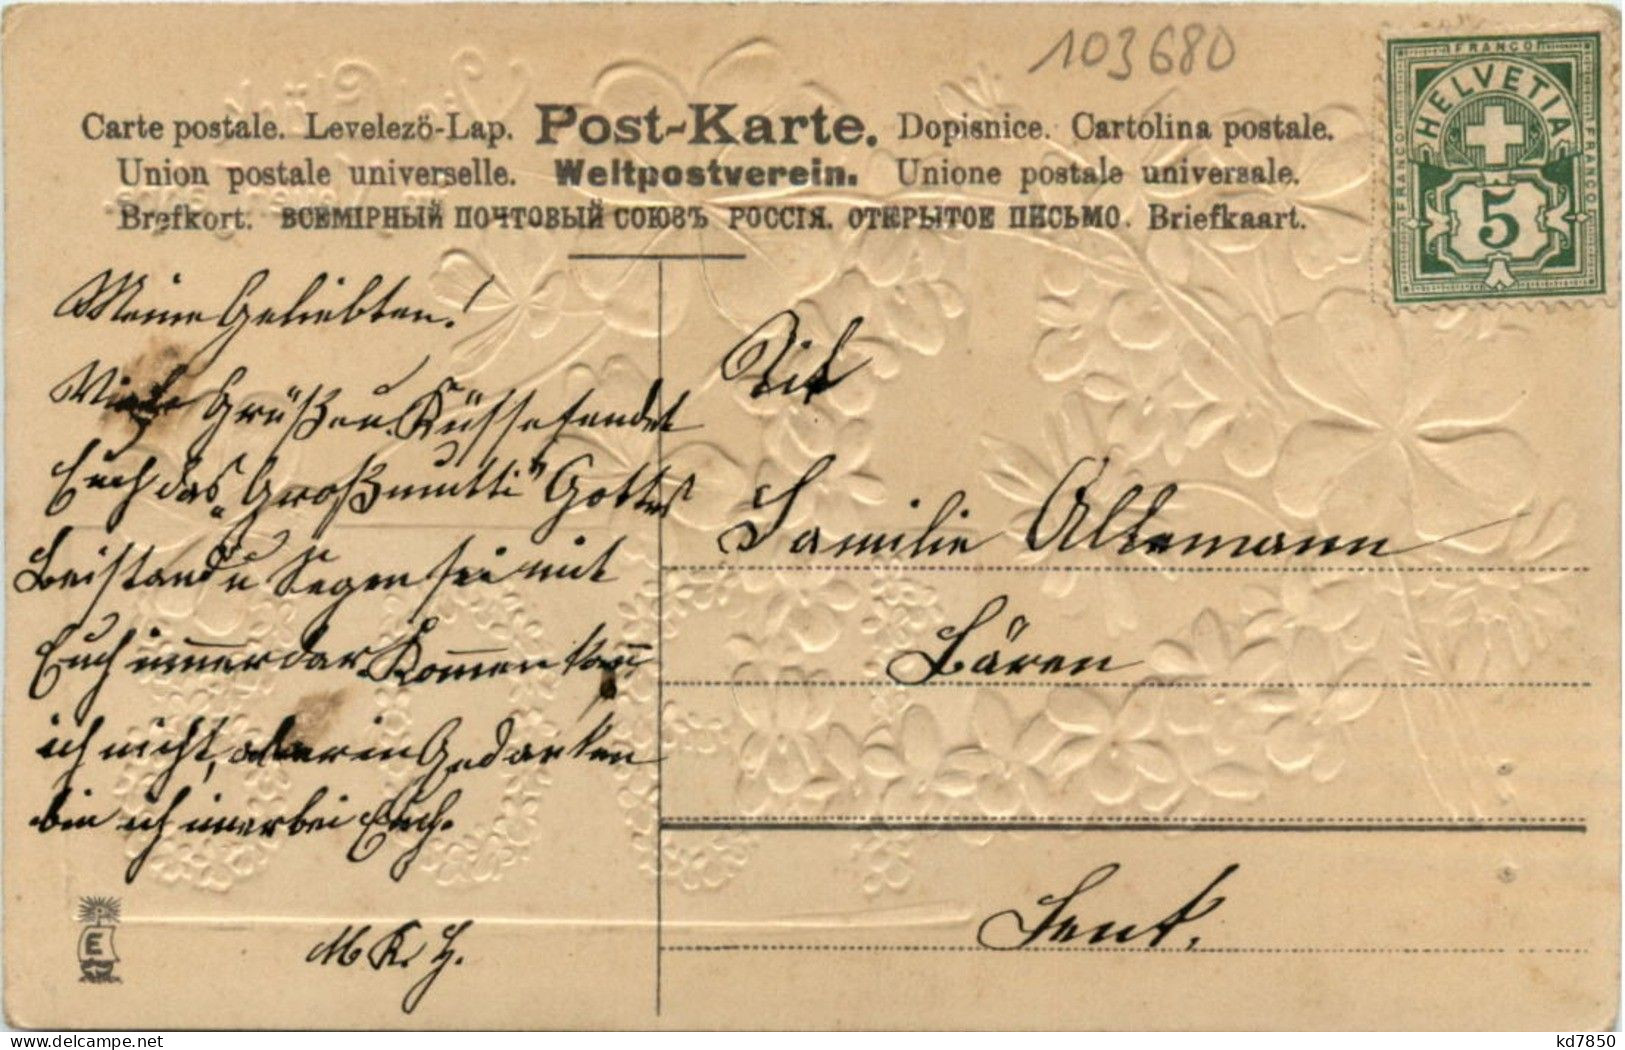 103680
Carte postale. Levelezö-Lap. Post-Karte. Dopisnice. Cartolina postale.
Union postale universelle. Weltpostverein. Unione postale universale.
Brefkort. ВСЕМІРНЫЙ ПОЧТОВЫЙ СОЮЗЪ РОССІЯ. ОТКРЫТОЕ ПИСЬМО. Briefkaart.
FRANCO
FRANCO
FRANCO
HELVETIA
5
Meine Geliebten!
Viele Grüße u. Küsse sendet
Euch das „Großmutti" Gottes
Beistand u Segen sei mit
Euch immerdar. Kom̅en kan̅
ich nicht, aber in Gedanken
bin ich im̅er bei Euch.
M K. H.
Familie Allemann
Bären
Sent.
E
delcampe.net
kd7850